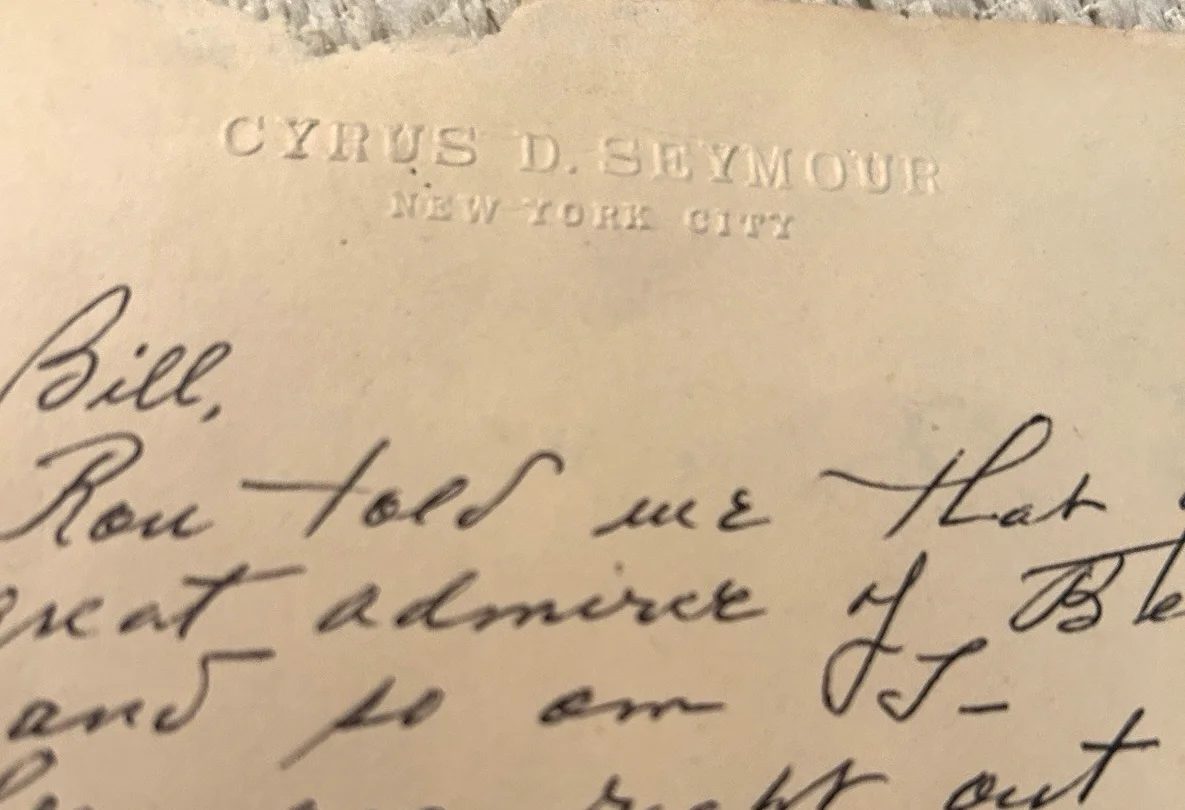 CYRUS D. SEYMOUR
NEW YORK CITY
Bill,
Ron told me that
great admirer of
and so am I-
right out